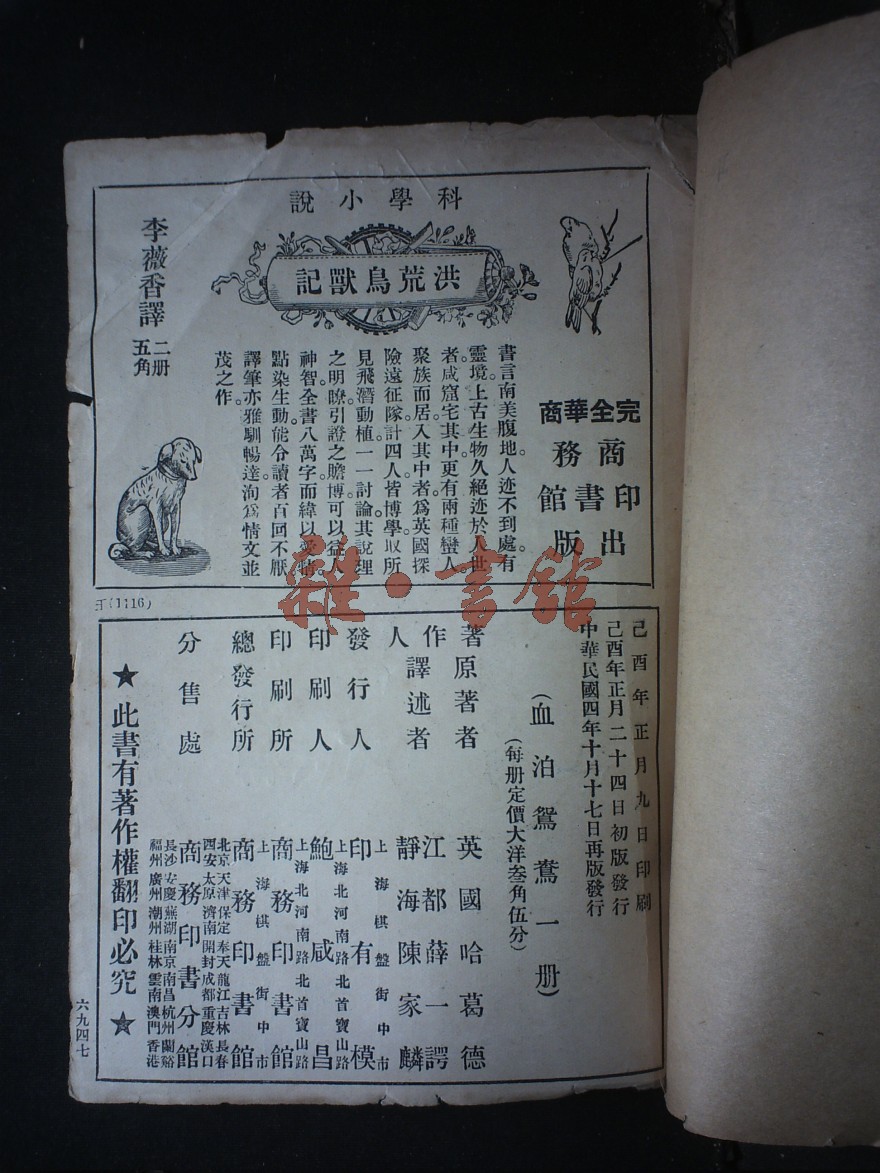 科學小說
洪荒鳥獸記
完全華商
商務
印書館
出版
書言南美腹地。人迹不到處。有
靈境。上古生物久絕迹於人世
者。咸窟宅其中。更有兩種蠻人。
聚族而居。入其中者。爲英國探
險遠征隊。計四人。皆博學。取所
見飛潛動植。一一討論。其說理
之明瞭。引證之贍博。可以益人
神智。全書八萬字。而緯以愛情。
點染生動。能令讀者百回不厭。
譯筆亦雅馴暢達。洵爲情文並
茂之作。
李薇香譯
二册
五角
(1116)
雜·書館
己酉年正月九日印刷
己酉年正月二十四日初版發行
中華民國四年十月十七日再版發行
(血泊鴛鴦一册)
(每册定價大洋叁角伍分)
著作人
原著者 英國哈葛德
譯述者 江都薛一諤
靜海陳家麟
發行人 印有模
上海棋盤街中市
印刷人 鮑咸昌
上海北河南路北首寶山路
印刷所 商務印書館
上海北河南路北首寶山路
總發行所 商務印書館
上海棋盤街中市
分售處 商務印書分館
北京天津保定奉天龍江吉林長春
西安太原濟南開封成都重慶漢口
長沙安慶蕪湖南京南昌杭州蘭谿
福州廣州潮州桂林雲南澳門香港
★此書有著作權翻印必究★
六九四七